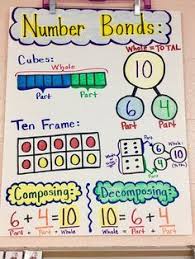 Number Bonds:
Cubes:
Whole
Part Part
Whole = TOTAL
10
6 4
Part Part
Ten Frame:
10
Whole
6 4
Composing:
6 + 4 = 10
Part + Part = Whole
Decomposing:
10 = 6 + 4
Whole = Part + Part